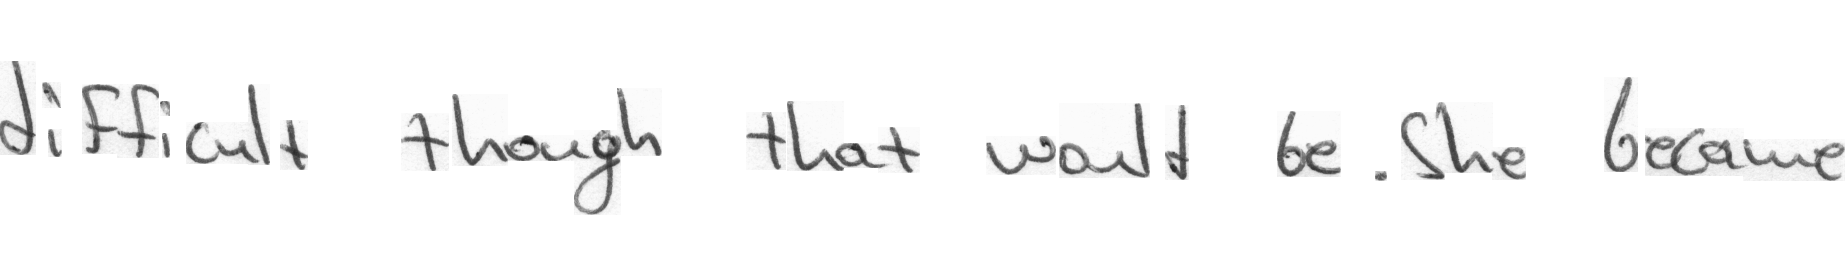 difficult though that would be. She became